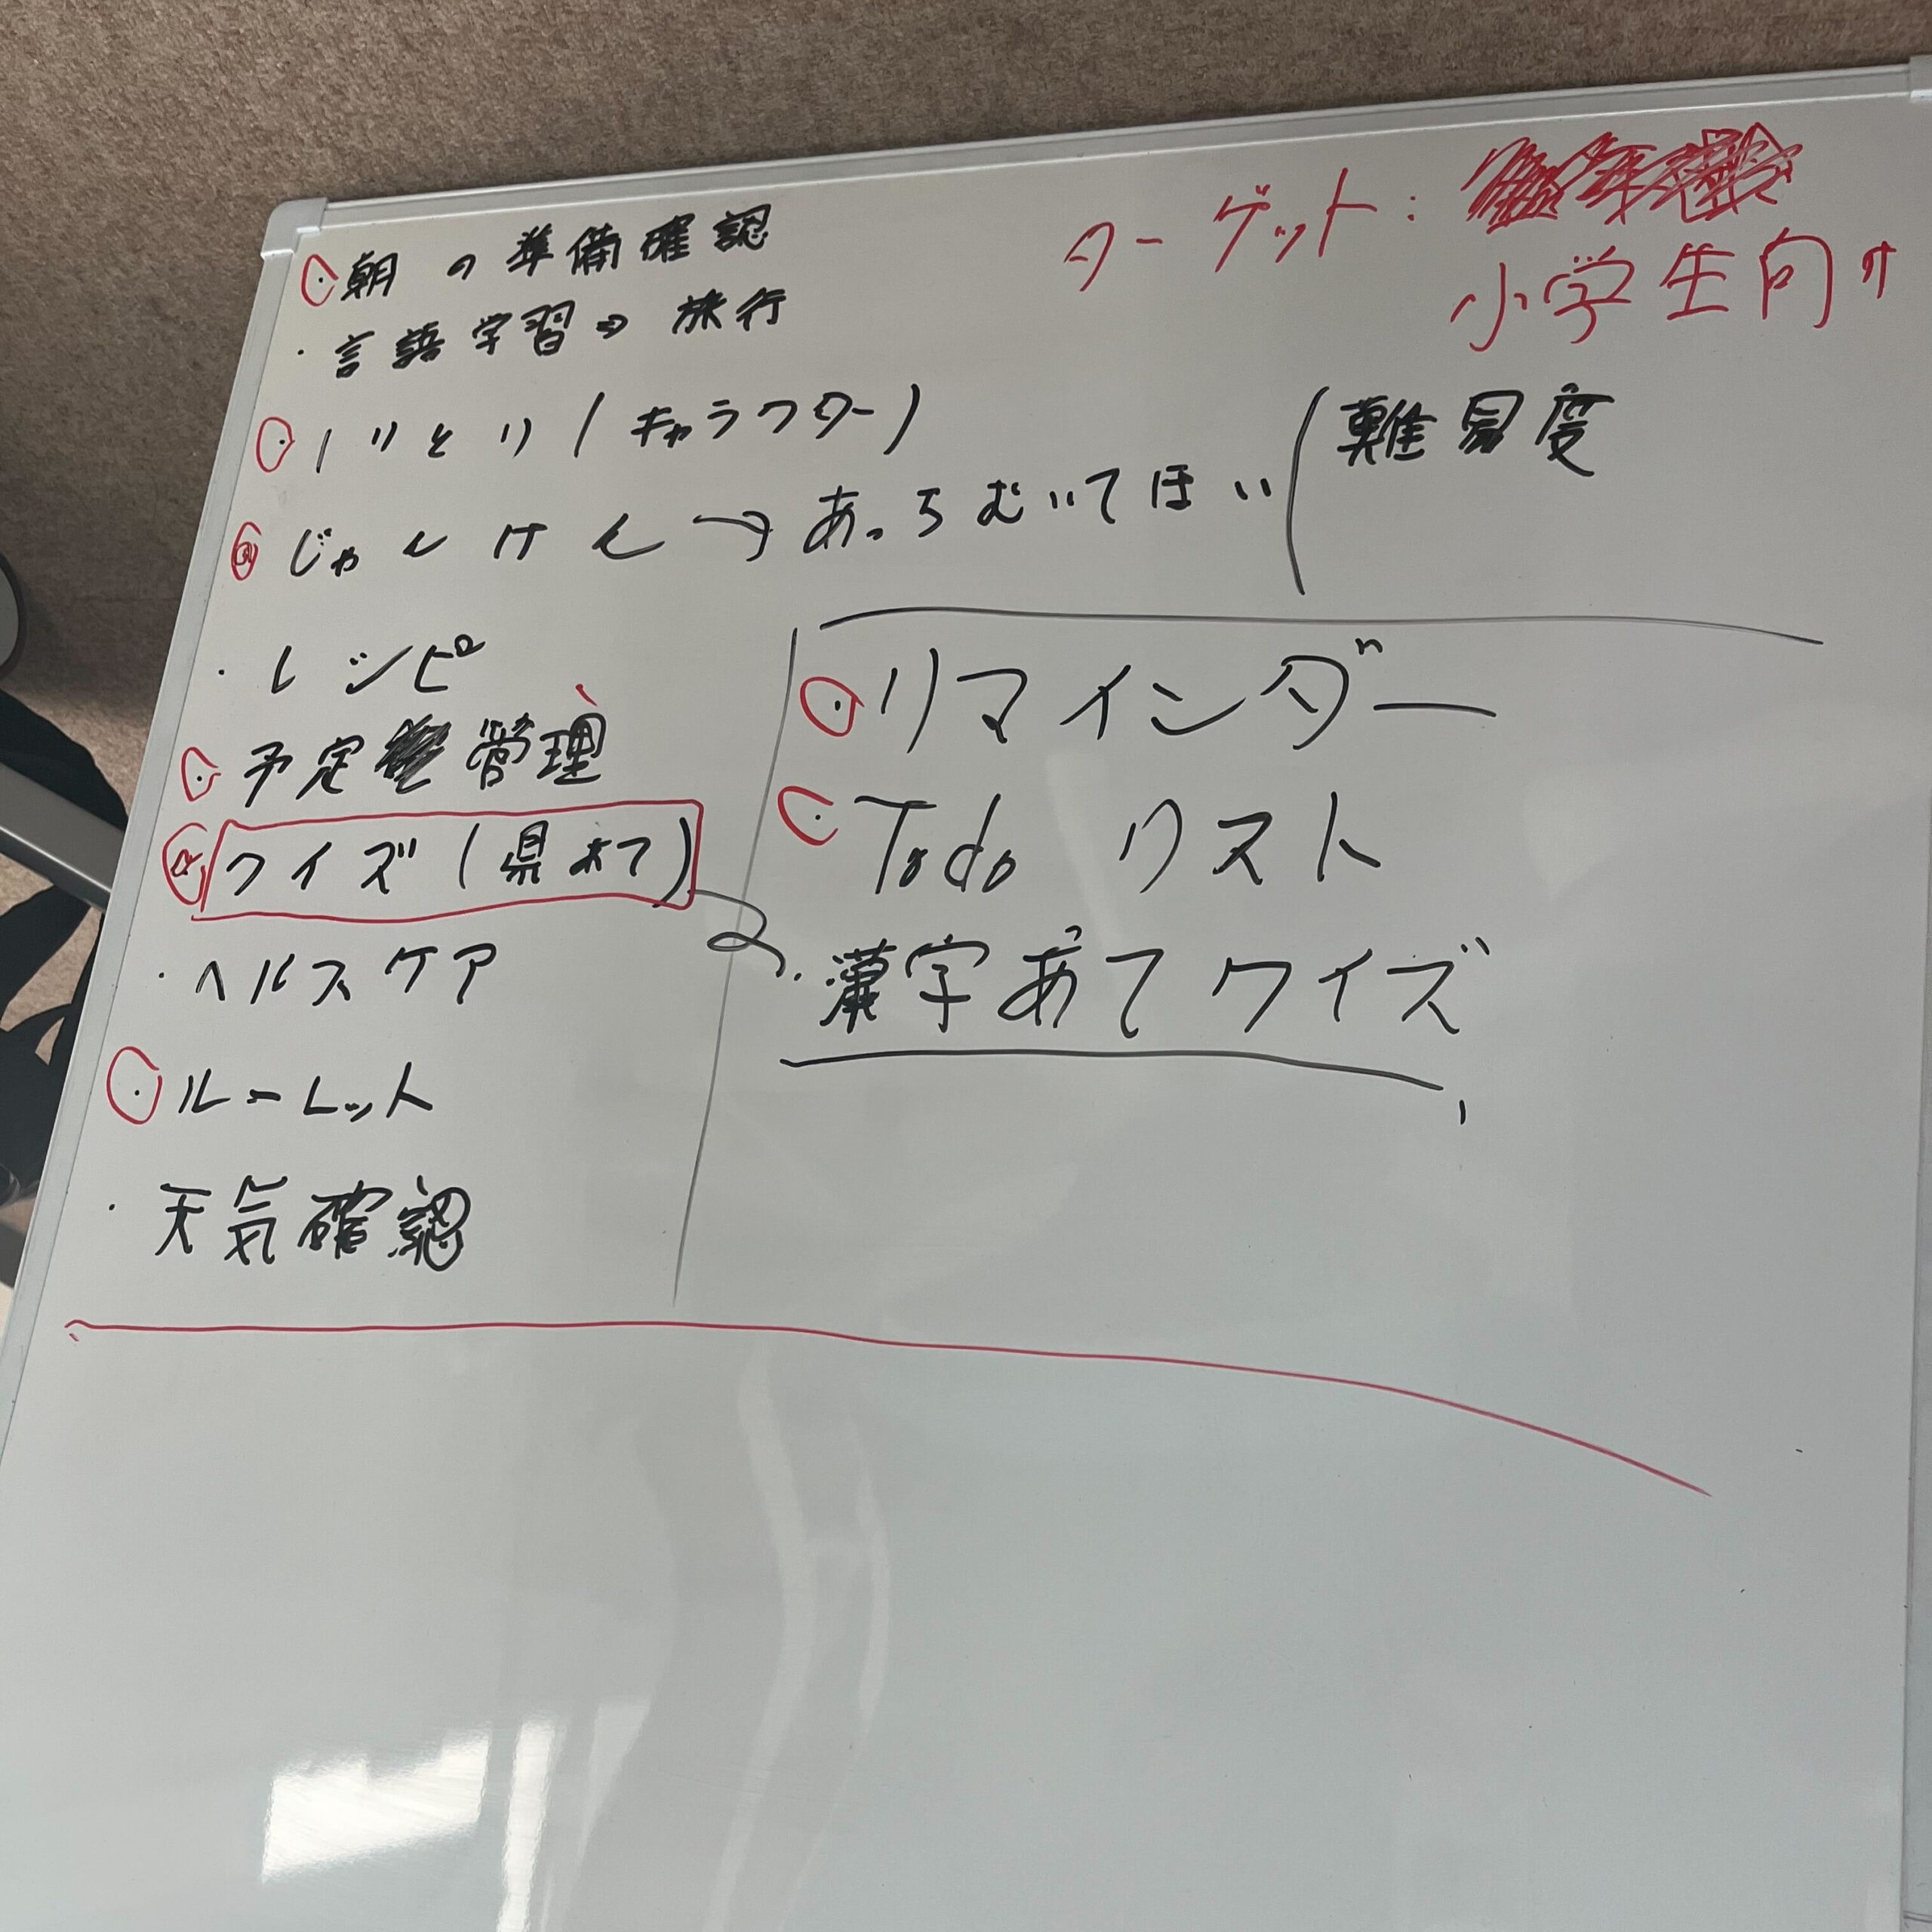 ターゲット:
小学生向け
・朝の準備確認
・言語学習⇒旅行
・しりとり(キャラクター)
じゃんけん→あっちむいてほい
難易度
・レシピ
・予定管理
クイズ(県あて)
・ヘルスケア
・ルーレット
・天気確認
・リマインダー
・Todoリスト
・漢字あてクイズ